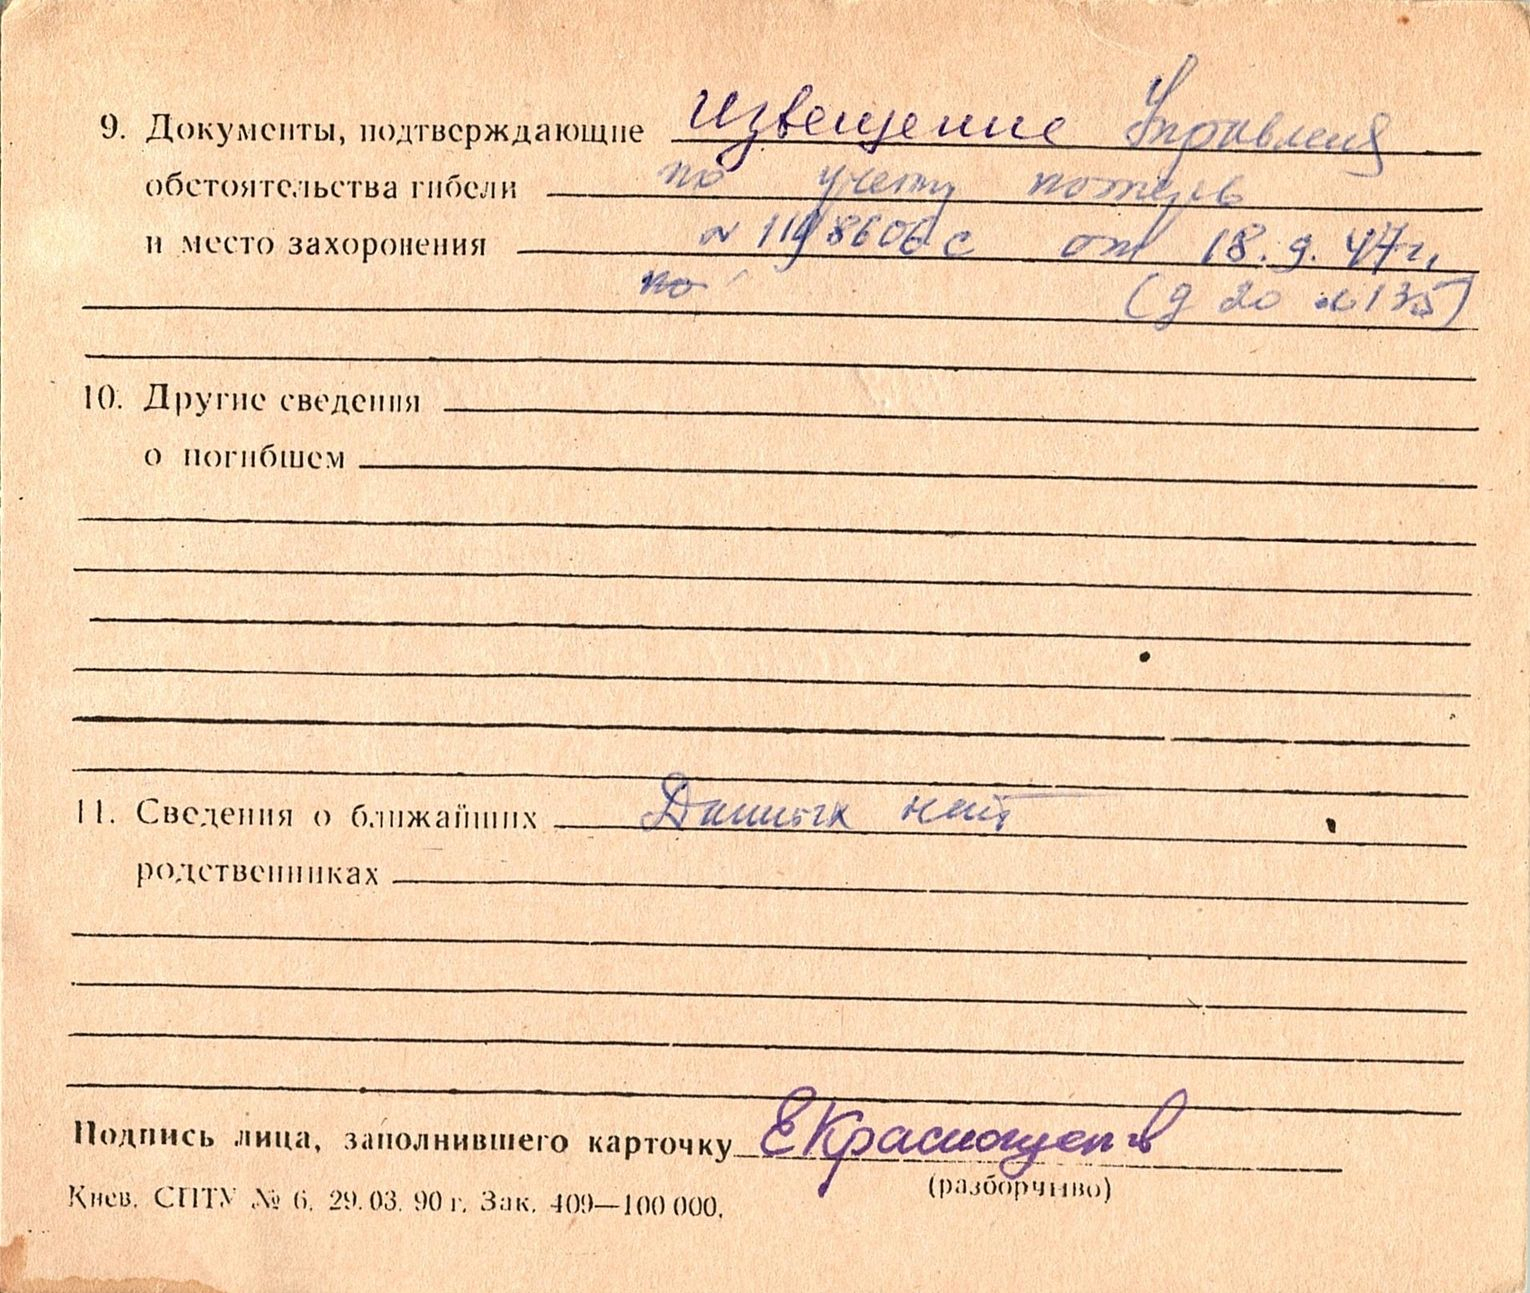 9. Документы, подтверждающие Извещение Управления
обстоятельства гибели по учету потерь
и место захоронения № 1198606с от 18.9.47г.
по (д 20 л 135)
10. Другие сведения
о погибшем
11. Сведения о ближайших Данных нет
родственниках
Подпись лица, заполнившего карточку ЕКраснощеков
(разборчиво)
Киев. СПТУ № 6. 29.03. 90 г. Зак. 409—100 000.